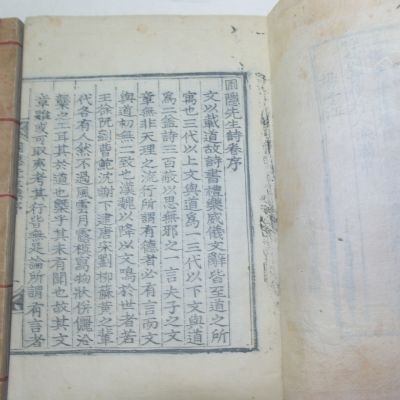 圃隱先生詩卷序
文以載道故詩書禮樂威儀文辭皆至道之所
寓也三代以上文與道爲一三代以下文與道
爲二盖詩三百蔽以思無邪之一言夫子之文
章無非天理之流行所謂有德者必有言而文
與道初無二致也漢魏以降以文鳴於世者若
王徐阮劉曹鮑沈謝下逮唐宋劉柳蘇黃之輩
代各有人然不過風雲月露模寫物狀倂儷洽
襞之工耳其於道也槩乎其未有聞也故其文
章雖或可取夷考其行皆無足論所謂有言者